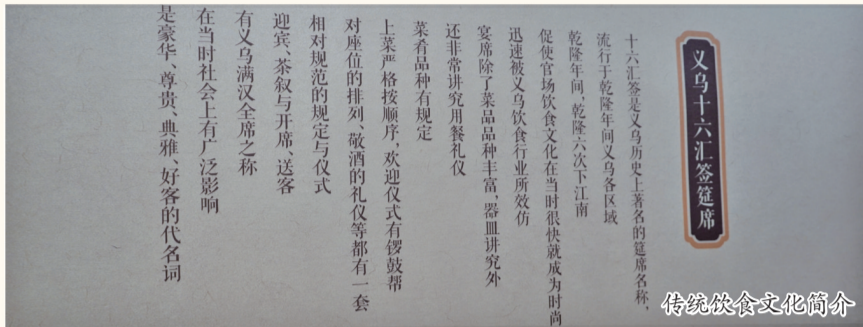 义乌十六汇签筵席
十六汇签是义乌历史上著名的筵席名称，
流行于乾隆年间义乌各区域
乾隆年间，乾隆六次下江南
促使官场饮食文化在当时很快就成为时尚
迅速被义乌饮食行业所效仿
宴席除了菜品品种丰富，器皿讲究外
还非常讲究用餐礼仪
菜肴品种有规定
上菜严格按顺序，欢迎仪式有锣鼓帮
对座位的排列、敬酒的礼仪等都有一套
相对规范的规定与仪式
迎宾、茶叙与开席、送客
有义乌满汉全席之称
在当时社会上有广泛影响
是豪华、尊贵、典雅、好客的代名词
传统饮食文化简介